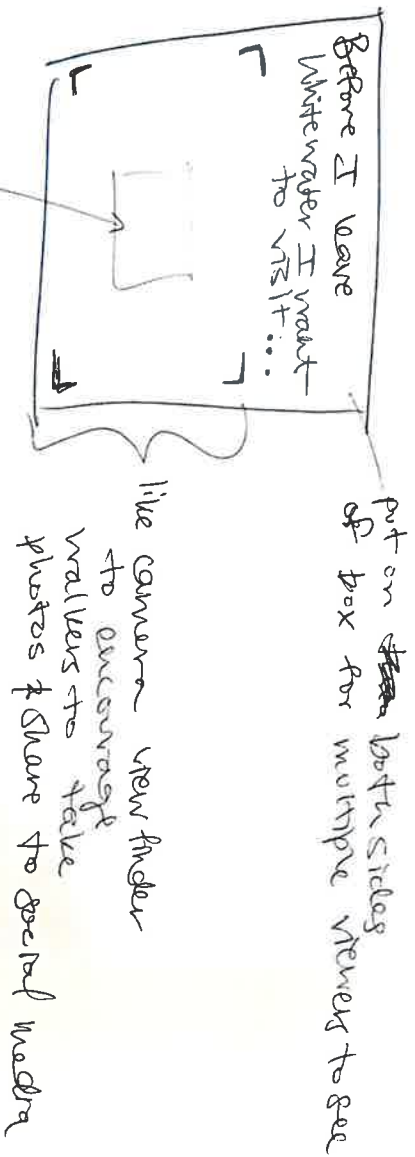 Before I leave
Whitewater I want
to visit...
put on both sides
of box for multiple viewers to see
like camera view finder
to encourage
walkers to take
photos & share to social media